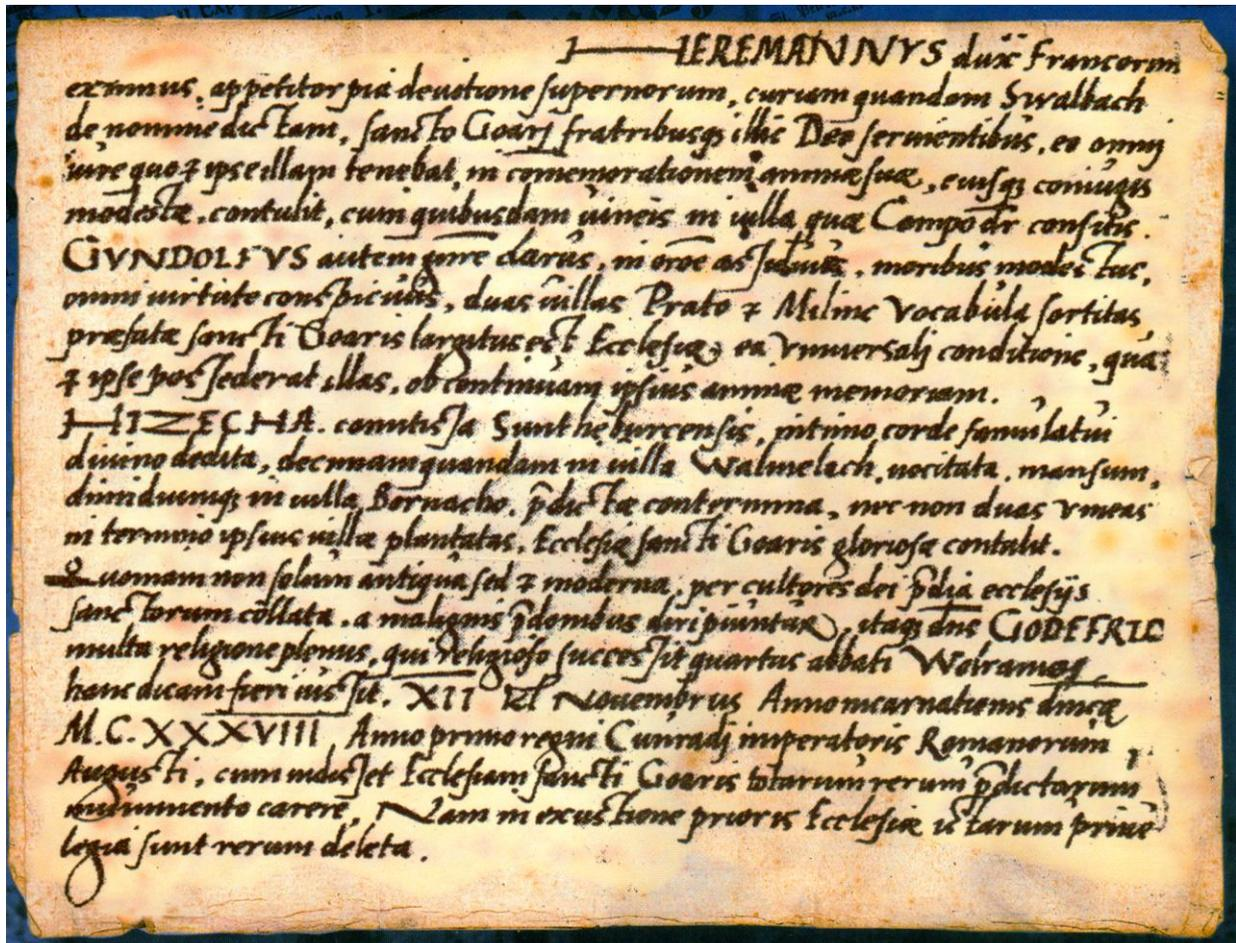 HEREMANNVS dux Francorum
eximius, appetitor pia deuotione supernorum, curiam quandam Swalbach
de nomine dictam, sancto Goarj fratribusq; illic Deo seruientibus, eo omnj
iure quo & ipse illam tenebat, in comemorationem animæ suæ, eiusq; coniugis
modestæ, contulit, cum quibusdam uineis in uilla quæ Compo dr consitis.
GVNDOLFVS autem gñre clarus, in oroe assiduus, moribus modestus,
omni uirtute conspicuus, duas uillas Prato & Milinc vocabula sortitas,
præfatæ sancti Goaris largitus est Ecclesiæ, ea vniuersalj conditione, qua
& ipse possederat illas, ob continuam ipsius animæ memoriam.
HIZECHA. comitissa Suntheburcensis, intimo corde famulatui
diuino dedita, decimam quandam in uilla Walmelach uocitata, mansum,
dimidiumq; in uilla Bornacho, p̄dictæ contermina, nec non duas vineas
in termino ipsius uillæ plantatas, Ecclesiæ sancti Goaris gloriosæ contulit.
Quoniam non solum antiqua sed & moderna, per cultores dei p̄dia ecclesijs
sanctorum collata, a malignis p̄donibus diripiuntur, itaq; dn̄s GODEFRID
multa religione plenus, qui religioso successit quartus abbati Wolramoq;
hanc dicam fieri iussit. XII Kl Nouembrus Anno incarnationis dm̄cæ
M.C.XXXVIII, Anno primo regni Cunradj imperatoris Romanorum
Augusti, cum uidisset Ecclesiam sancti Goaris totarum rerum p̄dictarum
munimento carere, Nam in excustione prioris Ecclesiæ istarum priue
legia sunt rerum deleta.